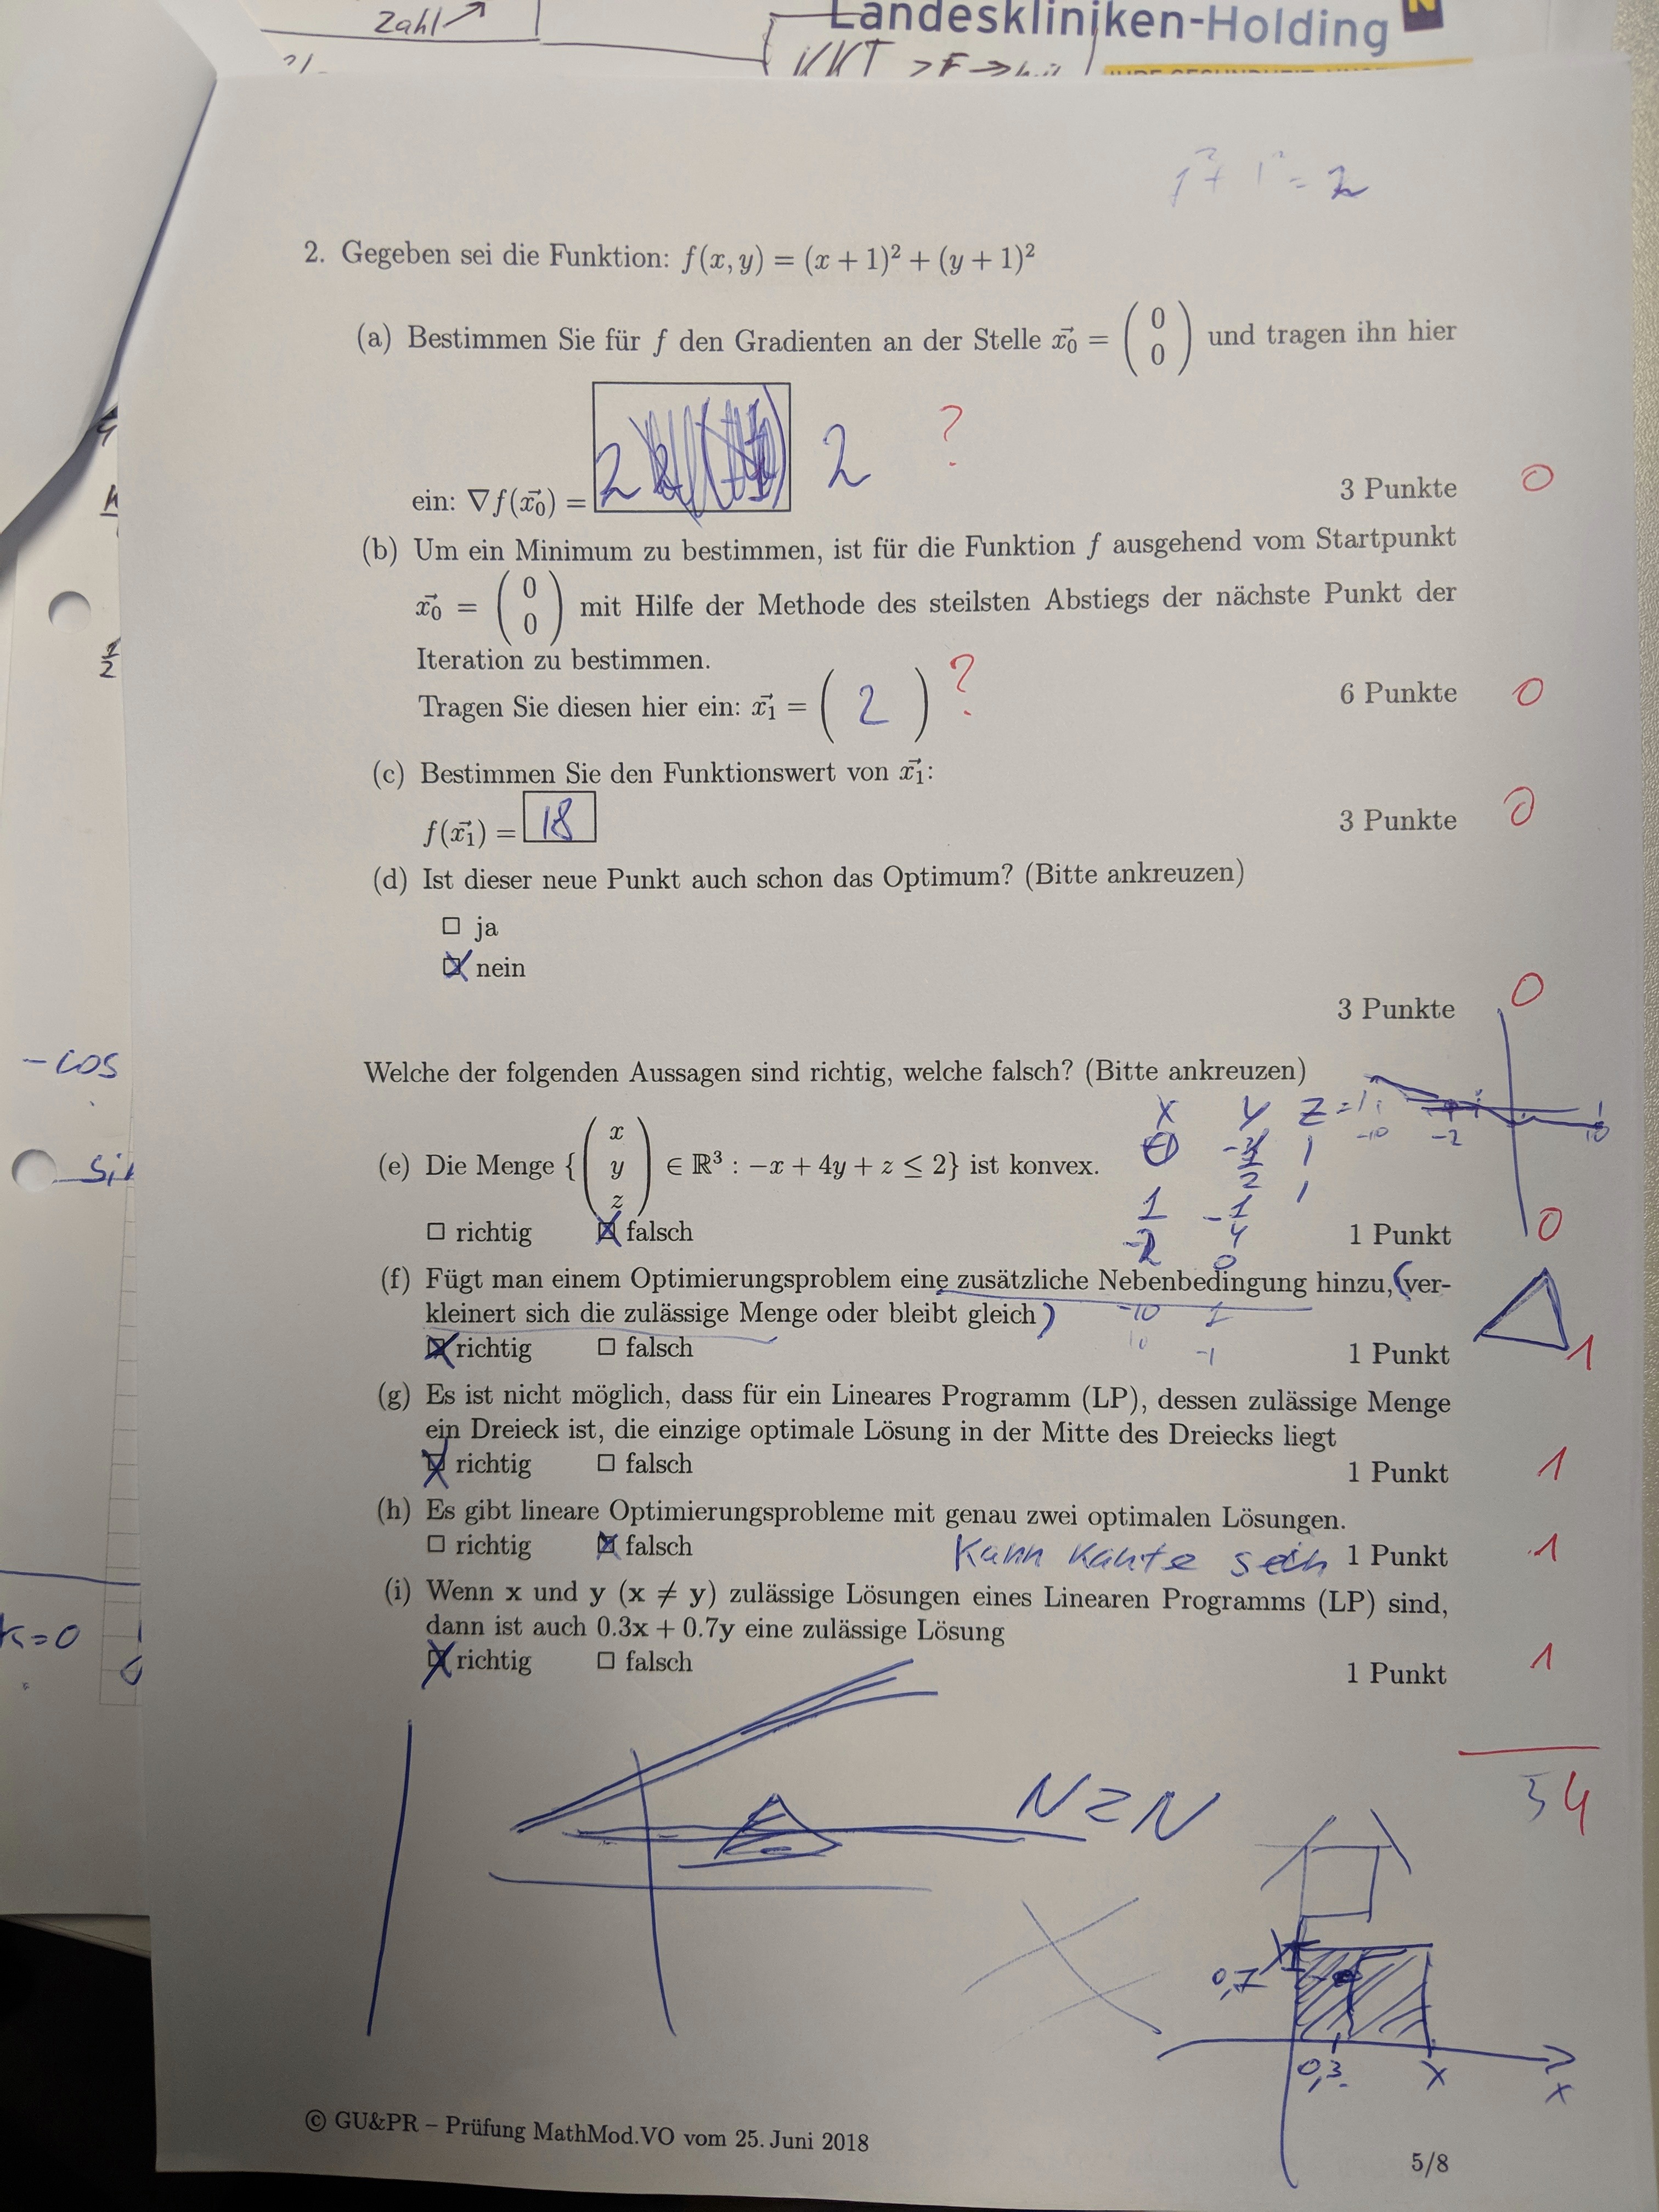 Zahl
Landeskliniken-Holding
KKT > F →
1² + 1² = 2
2. Gegeben sei die Funktion: f(x, y) = (x + 1)² + (y + 1)²
(a) Bestimmen Sie für f den Gradienten an der Stelle x⃗₀ = ( 0 0 ) und tragen ihn hier
ein: ∇f(x⃗₀) = 2 2 ?
3 Punkte 0
(b) Um ein Minimum zu bestimmen, ist für die Funktion f ausgehend vom Startpunkt
x⃗₀ = ( 0 0 ) mit Hilfe der Methode des steilsten Abstiegs der nächste Punkt der
Iteration zu bestimmen.
Tragen Sie diesen hier ein: x⃗₁ = ( 2 ) ?
6 Punkte 0
(c) Bestimmen Sie den Funktionswert von x⃗₁:
f(x⃗₁) = 18
3 Punkte 0
(d) Ist dieser neue Punkt auch schon das Optimum? (Bitte ankreuzen)
☐ ja
☒ nein
3 Punkte 0
Welche der folgenden Aussagen sind richtig, welche falsch? (Bitte ankreuzen)
x y z = 1
-10 -2 10
(e) Die Menge { ( x y z ) ∈ ℝ³ : −x + 4y + z ≤ 2} ist konvex.
☐ richtig ☒ falsch
1 Punkt 0
(f) Fügt man einem Optimierungsproblem eine zusätzliche Nebenbedingung hinzu, (ver-
kleinert sich die zulässige Menge oder bleibt gleich)
-10
10 -1
☒ richtig ☐ falsch
1 Punkt 1
(g) Es ist nicht möglich, dass für ein Lineares Programm (LP), dessen zulässige Menge
ein Dreieck ist, die einzige optimale Lösung in der Mitte des Dreiecks liegt
☒ richtig ☐ falsch
1 Punkt 1
(h) Es gibt lineare Optimierungsprobleme mit genau zwei optimalen Lösungen.
☐ richtig ☒ falsch
Kann Kante sein 1 Punkt 1
(i) Wenn x und y (x ≠ y) zulässige Lösungen eines Linearen Programms (LP) sind,
dann ist auch 0.3x + 0.7y eine zulässige Lösung
☒ richtig ☐ falsch
1 Punkt 1
4
-cos
k=0
0,7
0,3
x
x
© GU&PR – Prüfung MathMod.VO vom 25. Juni 2018
5/8